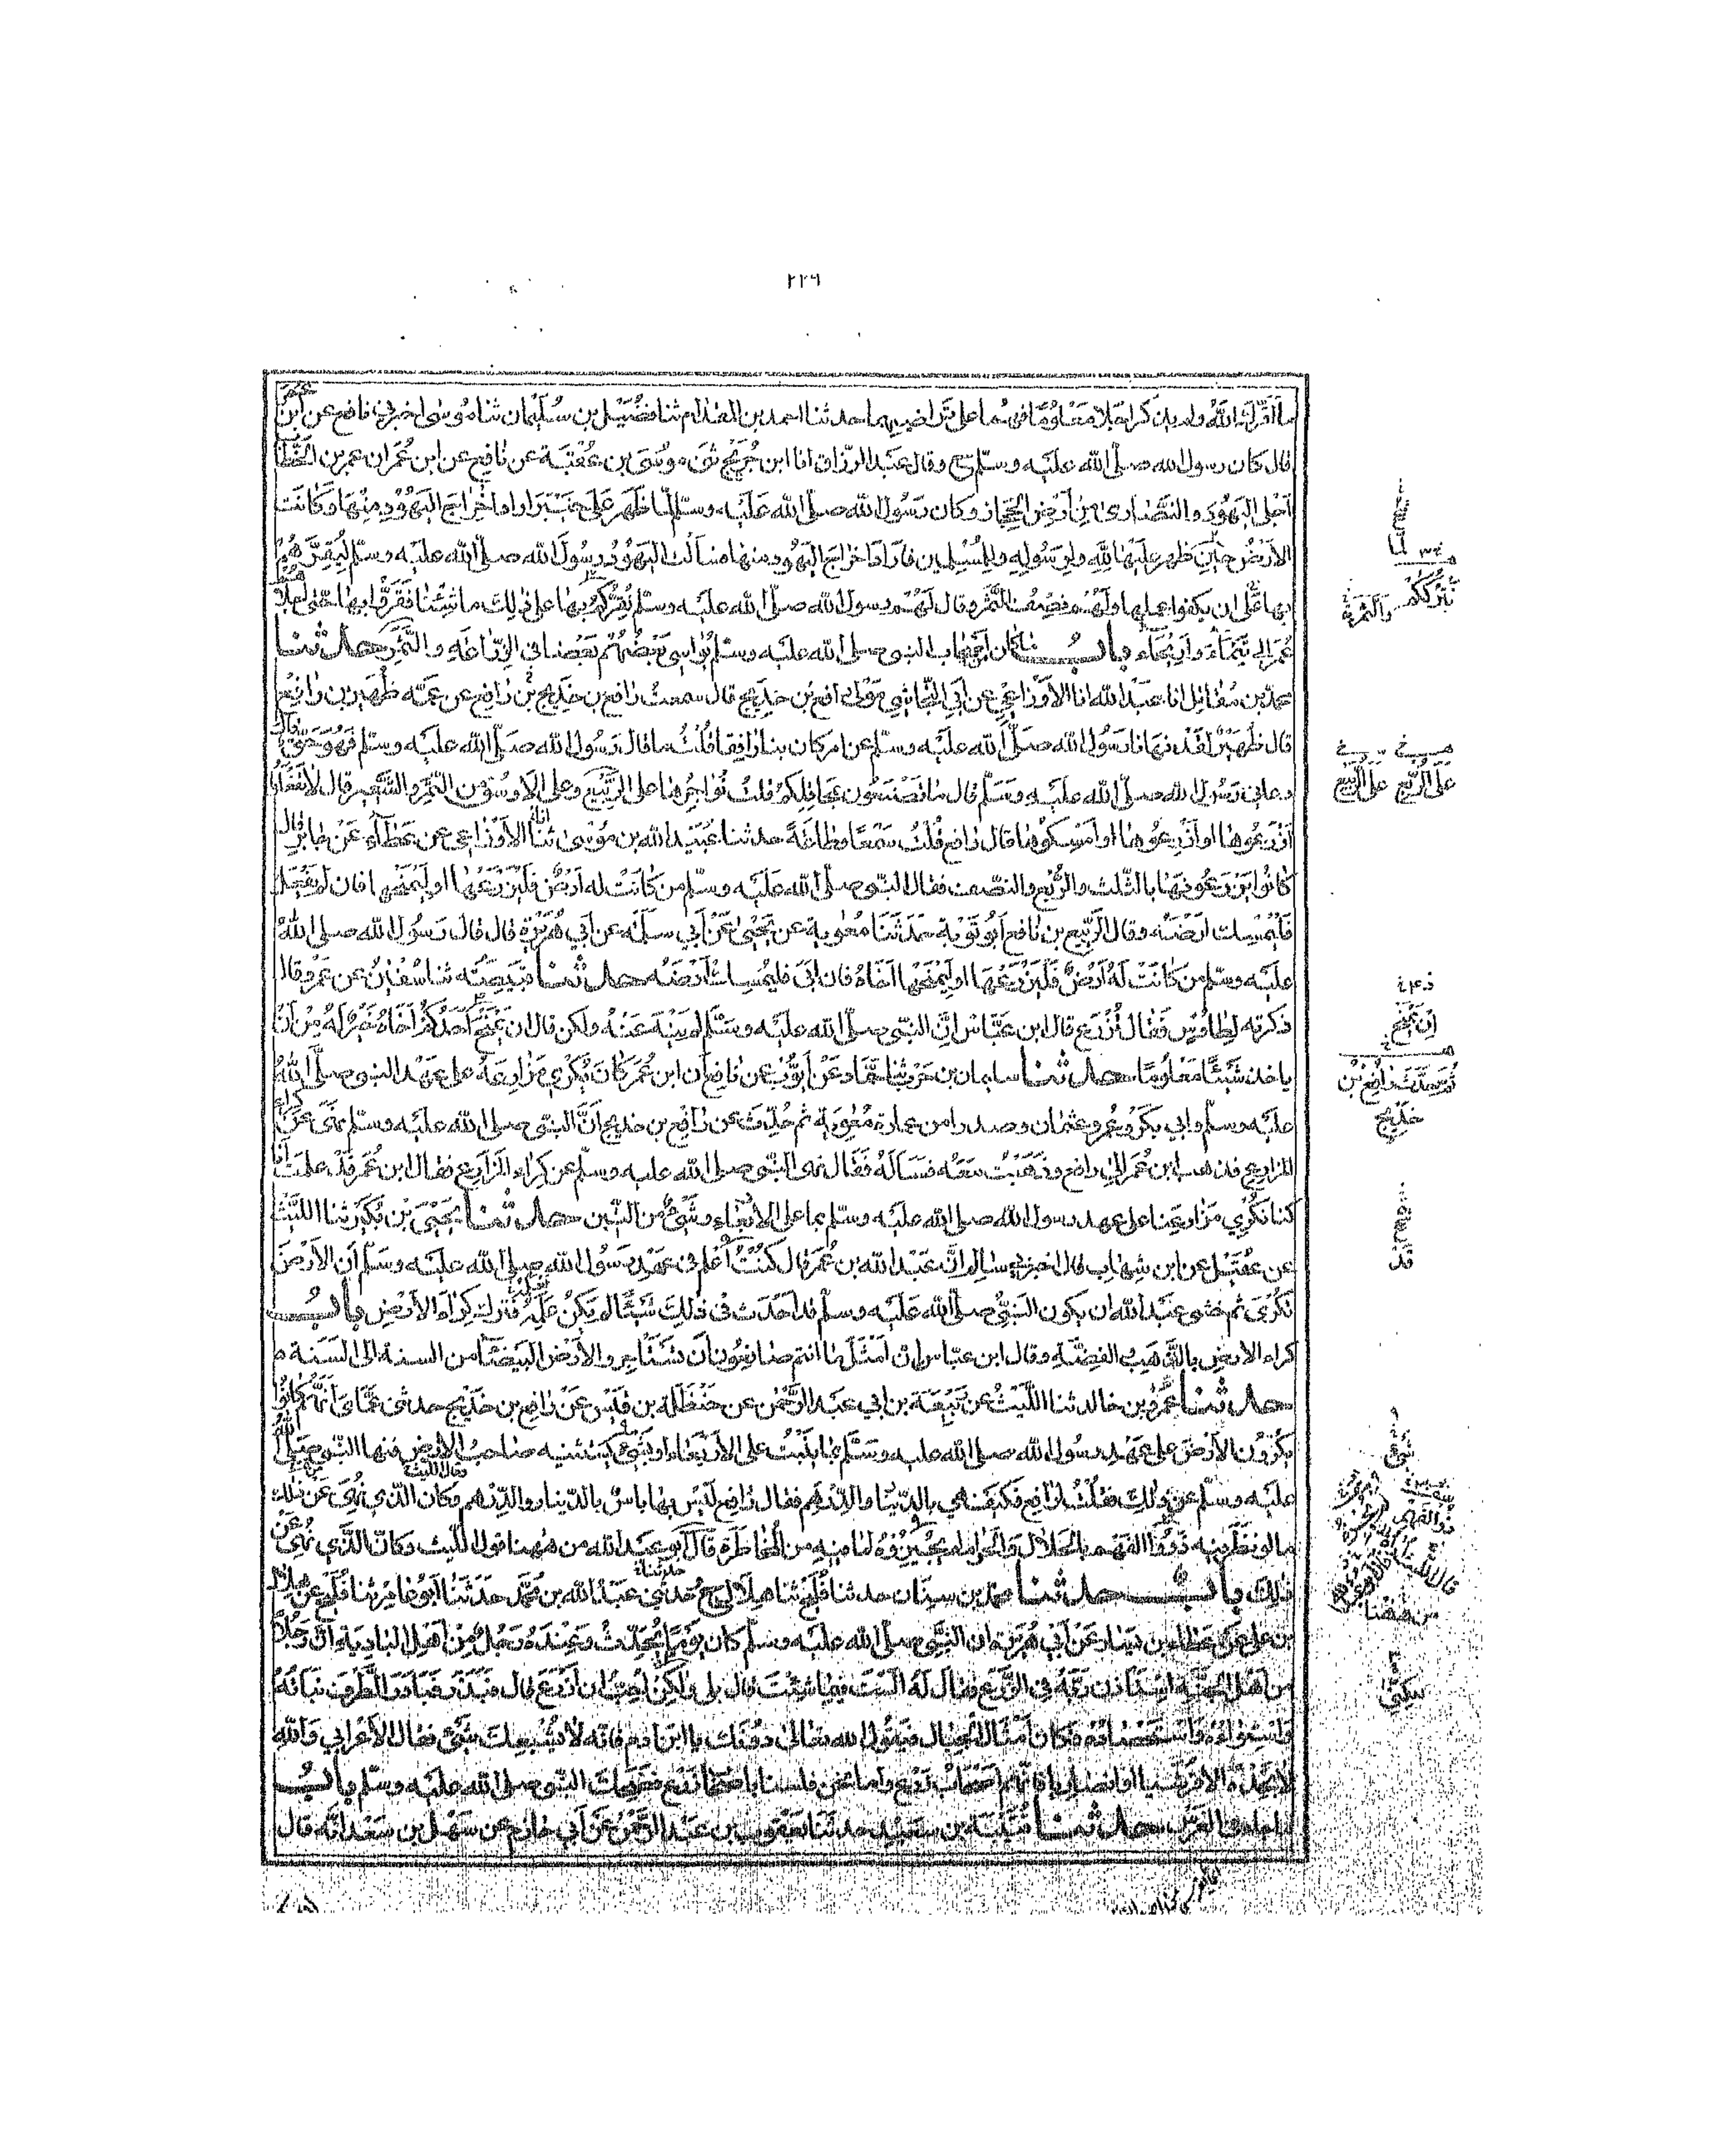 ٢٢٦
ما أقرك الله ولم يذكر اجلا معلوما فهما على تراضيهما حدثنا احمد بن المقدام ثنا فضيل بن سليمان ثنا موسى اخبرني نافع عن ابن عمر
قال كان رسول الله صلى الله عليه وسلم ح وقال عبد الرزاق انا ابن جريج ثني موسى بن عقبة عن نافع عن ابن عمر ان عمر بن الخطاب
اجلى اليهود والنصارى من أرض الحجاز وكان رسول الله صلى الله عليه وسلم لما ظهر على خيبر اراد اخراج اليهود منها وكانت
الارض حين ظهر عليها لله ولرسوله وللمسلمين فاراد اخراج اليهود منها فسألت اليهود رسول الله صلى الله عليه وسلم ليقرهم
بها على ان يكفوا عملها ولهم نصف الثمر وقال لهم رسول الله صلى الله عليه وسلم نقركم بها على ذلك ما شئنا فقروا بها حتى اجلاهم
عمر الى تيماء وأريحاء باب ما كان اصحاب النبي صلى الله عليه وسلم يواسي بعضهم بعضا في الزراعة والثمر حدثنا
محمد بن مقاتل انا عبد الله انا الاوزاعي عن ابي النجاشي مولى رافع بن خديج قال سمعت رافع بن خديج بن رافع عن عمه ظهير بن رافع
قال ظهير لقد نهانا رسول الله صلى الله عليه وسلم عن امر كان بنا رافقا قلت ما قال رسول الله صلى الله عليه وسلم فهو حق قال
دعاني رسول الله صلى الله عليه وسلم قال ما تصنعون بمحاقلكم قلت نؤاجرها على الربيع وعلى الاوسق من التمر والشعير قال لا تفعلوا
ازرعوها او أزرعوها او أمسكوها قال رافع قلت سمعا وطاعة حدثنا عبيد الله بن موسى ثنا الاوزاعي عن عطاء عن جابر قال
كانوا يزرعونها بالثلث والربع والنصف فقال النبي صلى الله عليه وسلم من كانت له ارض فليزرعها او ليمنحها فان لم يفعل
فليمسك ارضه وقال الربيع بن نافع ابو توبة حدثنا معوية عن يحيى عن أبي سلمة عن ابي هريرة قال قال رسول الله صلى الله
عليه وسلم من كانت له أرض فليزرعها او ليمنحها اخاه فان ابى فليمسك أرضه حدثنا قبيصة ثنا سفين عن عمرو قال
ذكرته لطاوس فقال يزرع قال ابن عباس ان النبي صلى الله عليه وسلم لم ينه عنه ولكن قال ان يمنح احدكم اخاه خير له من أن
ياخذ شيئا معلوما حدثنا سليمان بن حرب ثنا حماد عن أيوب عن نافع أن ابن عمر كان يكري مزارعه على عهد النبي صلى الله
عليه وسلم وابي بكر وعمر وعثمان وصدرا من امارة معوية ثم حدث عن رافع بن خديج أن النبي صلى الله عليه وسلم نهى عن كراء
المزارع فذهب ابن عمر الى رافع وذهبت معه فسأله فقال نهى النبي صلى الله عليه وسلم عن كراء المزارع فقال ابن عمر قد علمت انا
كنا نكري مزارعنا على عهد رسول الله صلى الله عليه وسلم بما على الاربعاء وشيء من التبن حدثنا يحيى بن بكير ثنا الليث
عن عقيل عن ابن شهاب قال اخبرني سالم ان عبد الله بن عمر قال كنت أعلم في عهد رسول الله صلى الله عليه وسلم أن الارض
تكرى ثم خشي عبد الله ان يكون النبي صلى الله عليه وسلم قد احدث في ذلك شيئا لم يكن علمه فترك كراء الارض باب
كراء الارض بالذهب والفضة وقال ابن عباس ان امثل ما انتم صانعون أن تستأجروا الارض البيضاء من السنة الى السنة
حدثنا عمرو بن خالد ثنا الليث عن ربيعة بن ابي عبد الرحمن عن حنظلة بن قيس عن رافع بن خديج حدثني عماي انهم كانوا
يكرون الارض على عهد رسول الله صلى الله عليه وسلم بما ينبت على الاربعاء او بشيء يستثنيه صاحب الارض فنهانا النبي صلى الله
عليه وسلم عن ذلك فقلت لرافع فكيف هي بالدينار والدرهم فقال رافع ليس بها باس بالدينار والدرهم وقال الليث وكان الذي نهي عن ذلك
ما لو نظر فيه ذووا الفهم بالحلال والحرام لم يجيزوه لما فيه من المخاطرة قال أبو عبد الله من ههنا قول الليث وكان الذي نهي عن
ذلك باب حدثنا محمد بن سنان حدثنا فليح ثنا هلال ح وحدثني عبد الله بن محمد حدثنا أبو عامر ثنا فليح عن هلال
بن علي عن عطاء بن يسار عن أبي هريرة ان النبي صلى الله عليه وسلم كان يوما يحدث وعنده رجل من اهل البادية ان رجلا
من أهل الجنة استأذن ربه في الزرع فقال له الست فيما شئت قال بلى ولكن احب ان أزرع قال فبذر فبادر الطرف نباته
واستواؤه واستحصاده فكان أمثال الجبال فيقول الله تعالى دونك يا ابن ادم فانه لا يشبعك شيء فقال الاعرابي والله
لا تجده الا قرشيا او انصاريا فانهم اصحاب زرع واما نحن فلسنا باصحاب زرع فضحك النبي صلى الله عليه وسلم باب
ما جاء في الغرس حدثنا قتيبة بن سعيد حدثنا يعقوب بن عبد الرحمن عن أبي حازم عن سهل بن سعد انه قال
لما
نترككم
والثمرة
على الربيع على الربيع
ان يمنح
ثم حدث رافع بن
خديج
قد
شيء
من ههنا